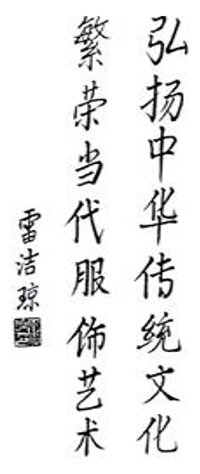 弘扬中华传统文化
繁荣当代服饰艺术
雷洁琼